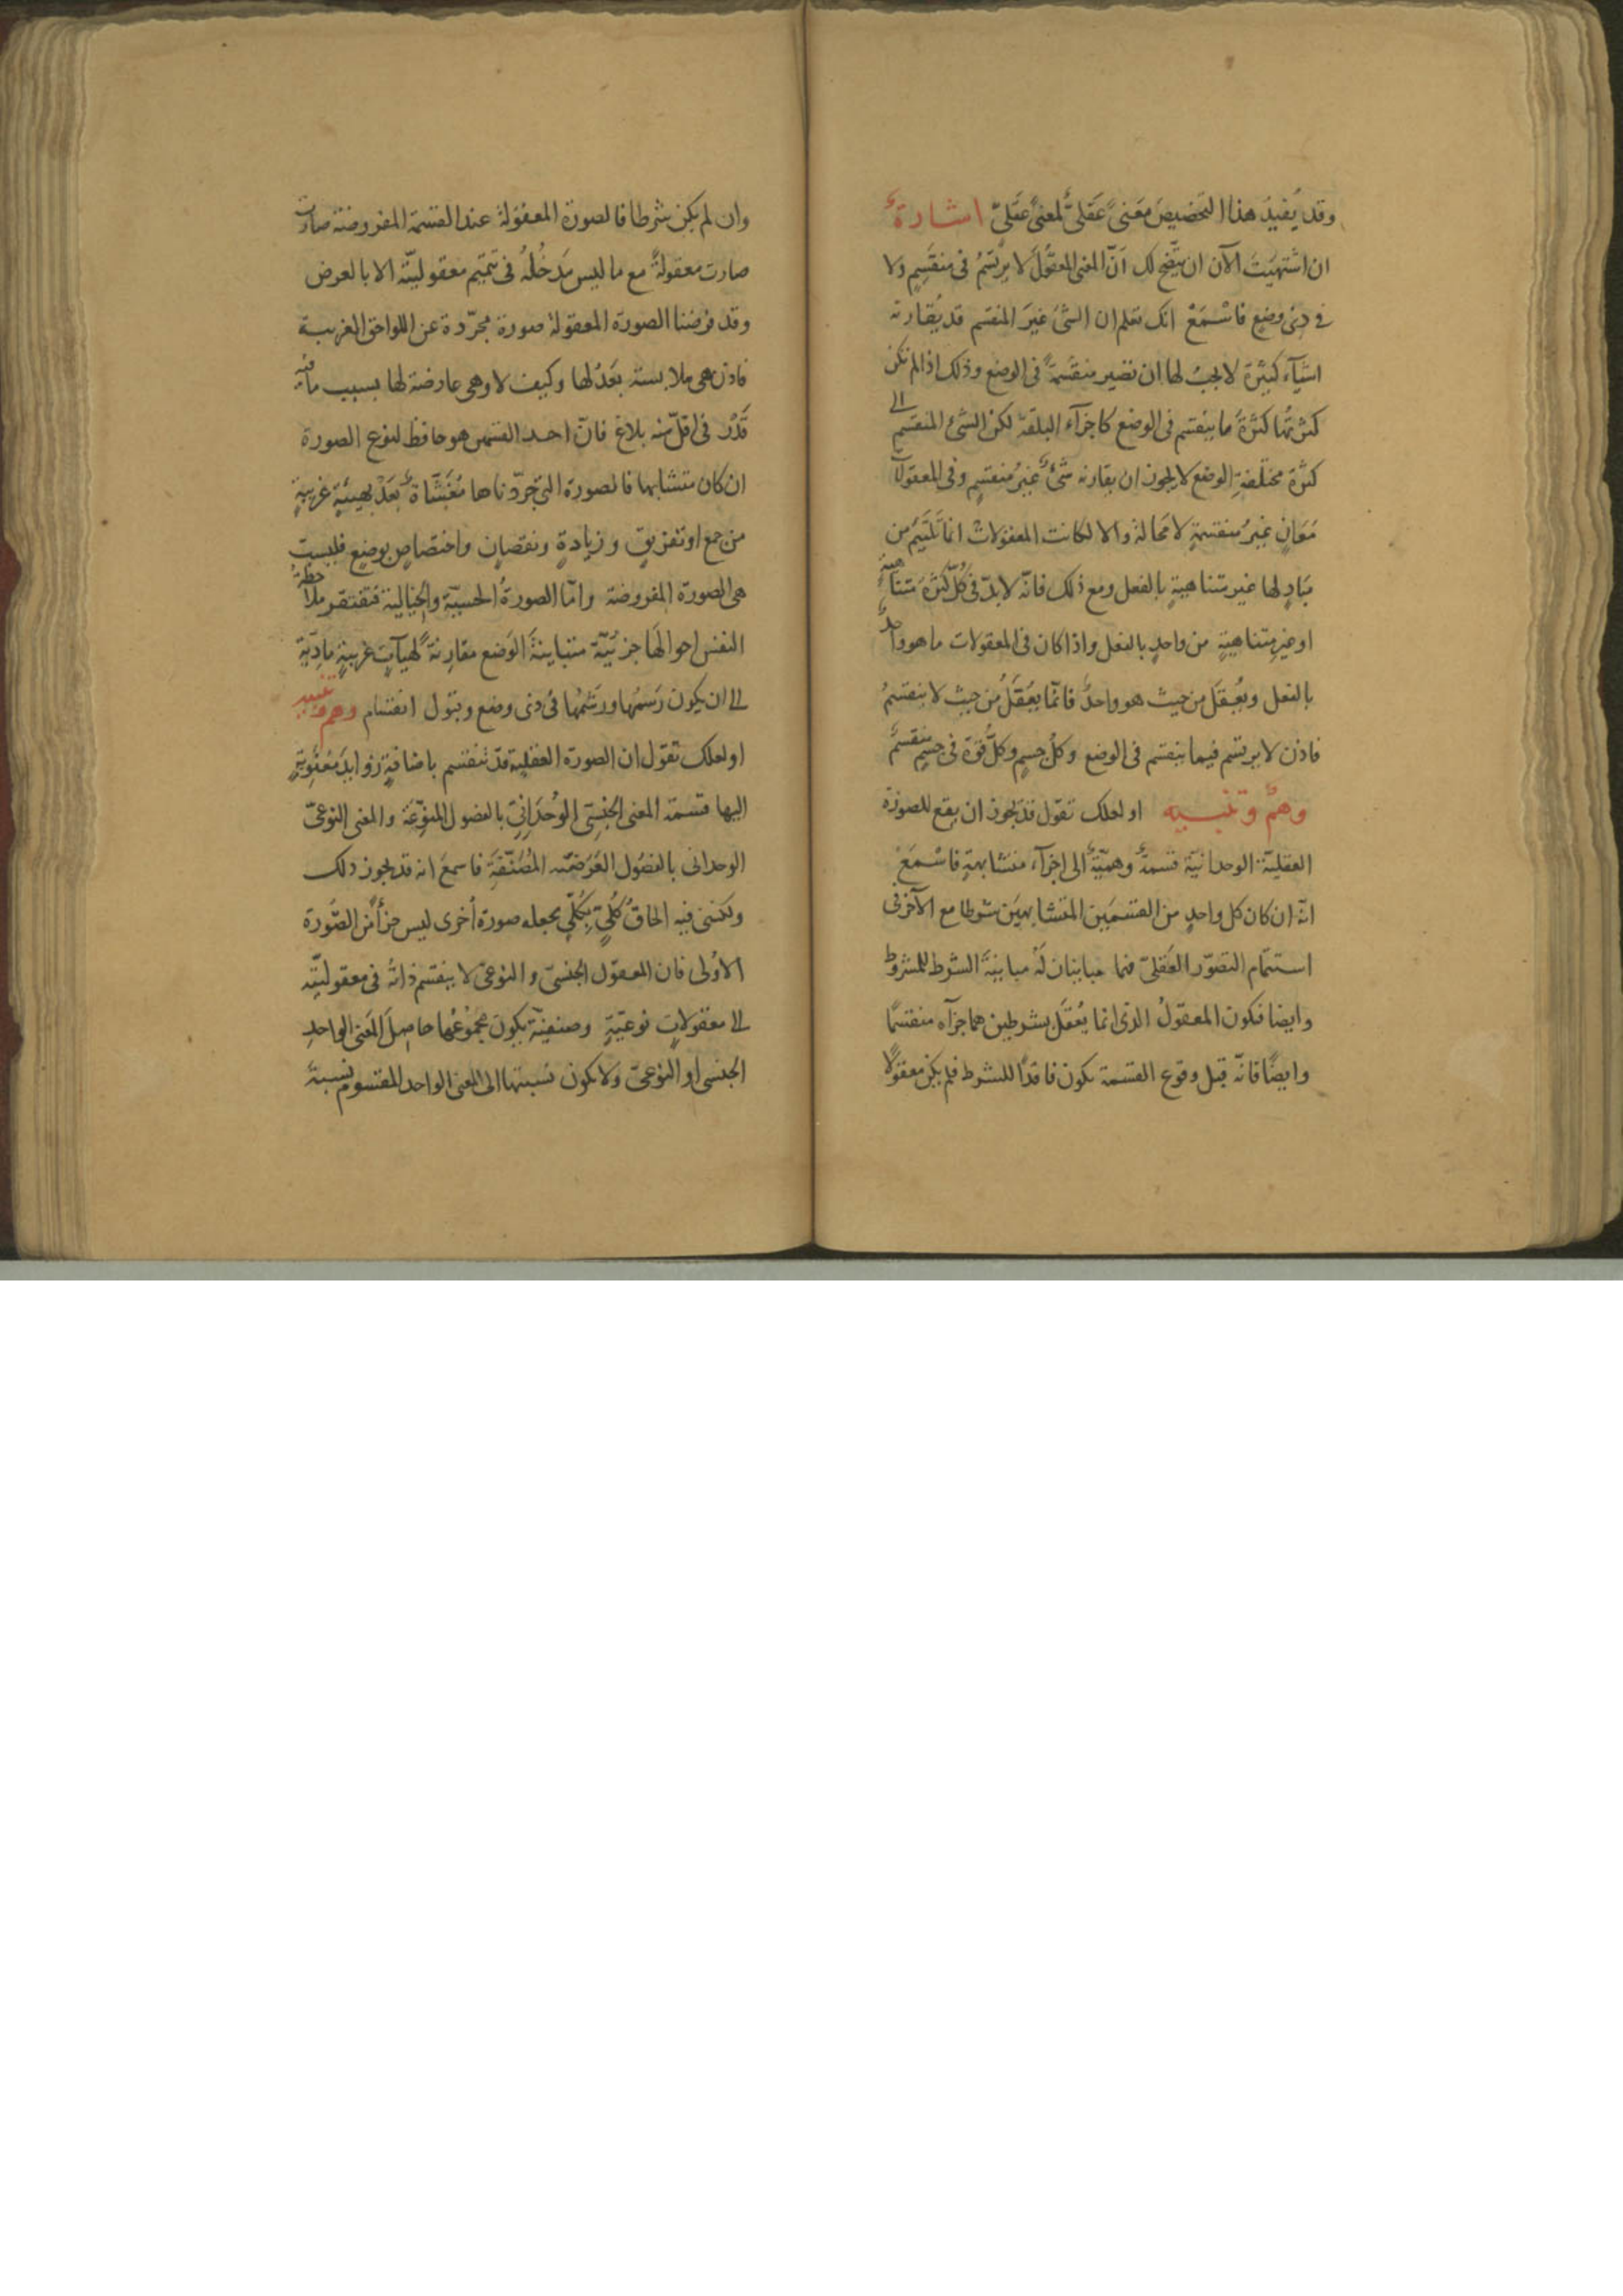 وقد يُفيدُ هذا التخصيصَ مَعنىً عَقليٌّ لمعنىً عَقليّ اشارةٌ
ان اشتهيتَ الآن ان يتّضح لك اَنّ المعنى المعقولَ لا يرتسمُ فى منقسِمٍ ولا
فى ذى وضعٍ فاسْمَعْ انك تعلم ان الشئَ غيرَ المنقسم قد يُقارنه
اشيآء كثيرة لا يجبُ لها ان تصير منقسمةً فى الوضع وذلك اذا لم تكن
كثرتُها كثرةَ ما ينقسم فى الوضع كاجزآء البلقة لكن الشئ المنقسم الى
كثرة مختلفةِ الوضع لا يجوز ان يقارنه شئٌ غيرُ منقسمٍ وفى المعقولات
مَعَانٍ غيرُ منقسمةٍ لا مَحالة والا لكانت المعقولاتُ انما تلتئم من
مَبَادٍ لها غير متناهيةٍ بالفعل ومع ذلك فانّه لا بدّ فى كُلّ كثرةٍ متناهيةٍ
او غير متناهيةٍ من واحدٍ بالفعل واذا كان فى المعقولات ما هو واحدٌ
بالفعل ويُعقَل من حيث هو واحدٌ فانّما يُعقَلُ من حيث لا ينقسمُ
فاذن لا يرتسم فيما ينقسم فى الوضع وكلُّ جسمٍ وكلُّ قوّة فى جسمٍ منقسمٌ
وهمٌ وتنبيه او لعلك تقول قد يجوز ان يقع للصورة
العقليّة الوحدانيّة قسمةٌ وهميّةٌ الى اجزآء متشابهةٍ فاسْمَعْ
انّه ان كان كل واحدٍ من القسمَين المتشابهَين شرطا مع الآخر فى
استتمام التصوّر العَقلىّ فهما مباينان لَهُ مباينةَ الشرط للمشروط
وايضا فيكون المعقولُ الذى انما يُعقَل بشرطين هما جزآه منقسمًا
وايضًا فانّه قبل وقوع القسمة يكون فاقدًا للشرط فلم يكن معقولًا
وان لم يكن شرطا فالصورة المعقولة عند القسمة المفروضة صارت
صارت معقولةً مع ما ليس مَدخلُهُ فى تتميم معقوليّته الا بالعرض
وقد فرضنا الصورة المعقولة صورة مجرّدة عن اللواحق الغريبة
فاذن هى ملابسة بَعدُ لها وكيف لا وهى عارضة لها بسبب ما فيه
قَدْر فى اقلّ منه بلاغ فانّ احد القسمين هو حافظ لنوع الصورة
ان كان متشابها فالصورة التى جرّدناها مُغشّاةٌ بَعدُ بهيئةٍ غريبةٍ
من جمع او تفريقٍ وزيادةٍ ونقصانٍ واختصاصٍ بوضعٍ فليست
هى الصورة المفروضة وامّا الصورةُ الحسيّة والخيالية فتفتقر ملاحظةُ
النفس احوالَها جزئيّة متباينةَ الوَضع مقارِنةً لهيآتٍ غريبةٍ مادّيةٍ
الى ان يكون رَسمُها ورَشمُها فى ذى وضع وقبول انقسام وهم وتنبيه
او لعلك تقول ان الصورة العقلية قد تنقسم باضافةٍ زوايدَ مَعنويّةٍ
اليها قسمة المعنى الجنسِىّ الوُحدانِىّ بالفصول المنوِّعَة والمعنى النوعىّ
الوحدانى بالفصُول العَرَضيّه المُصَنّفَةِ فاسمع انه قد يجوز ذلك
ولكن فيه الحاقُ كُلّىٍّ بِكُلّىٍّ يجعله صورة أخرى ليس جزأً من الصّورة
الاُولى فان المعقول الجنسىّ والنوعىّ لا ينقسم ذاتُه فى معقوليّته
الى معقولاتٍ نوعيّةٍ وصنفيّةٍ يكون مجموعُها حاصِلَ المَعنى الواحدِ
الجنسى او النوعىّ ولا يكون نسبتها الى المعنى الواحد المقسوم نسبةَ